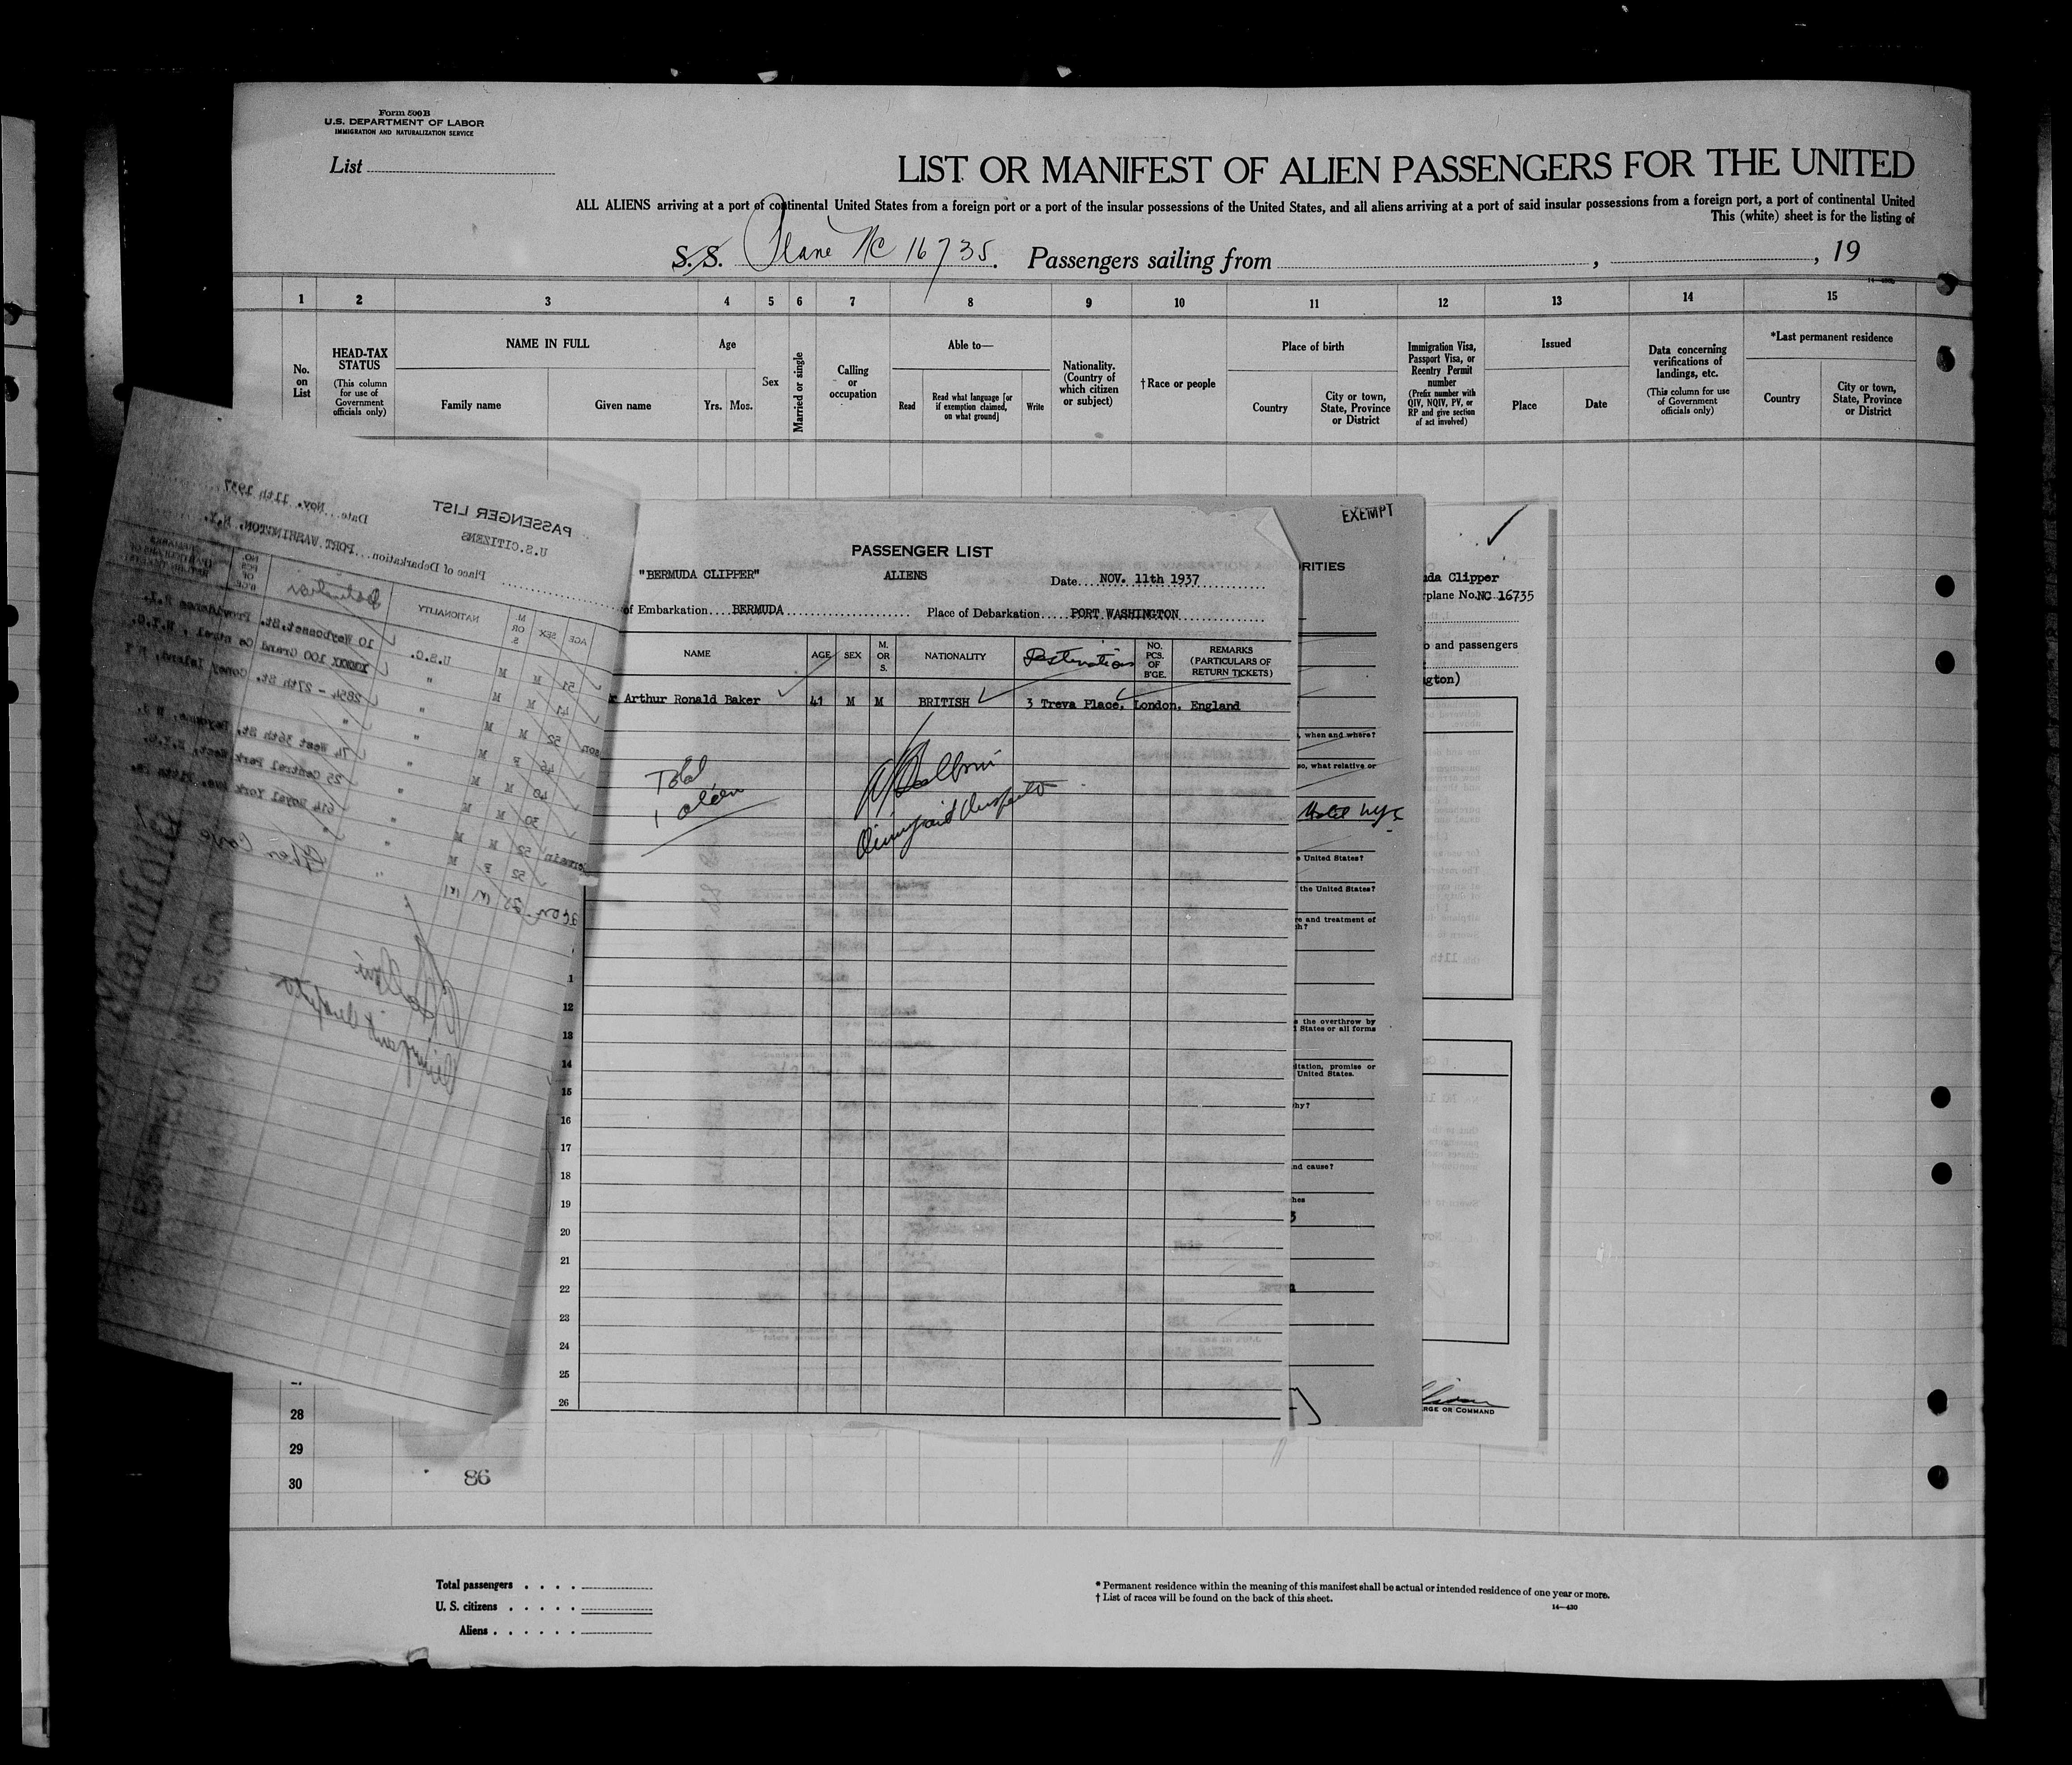 Form 500 B
U.S. DEPARTMENT OF LABOR
IMMIGRATION AND NATURALIZATION SERVICE
List
LIST OR MANIFEST OF ALIEN PASSENGERS FOR THE UNITED
ALL ALIENS arriving at a port of continental United States from a foreign port or a port of the insular possessions of the United States, and all aliens arriving at a port of said insular possessions from a foreign port, a port of continental United
This (white) sheet is for the listing of
S.S. Plane NC 16735. Passengers sailing from , , 19
1 2 3 4 5 6 7 8 9 10 11 12 13 14 15
No. on List
HEAD-TAX STATUS
(This column for use of Government officials only)
NAME IN FULL
Family name Given name
Age
Yrs. Mos.
Sex
Married or single
Calling or occupation
Able to—
Read
Read what language [or if exemption claimed, on what ground]
Write
Nationality. (Country of which citizen or subject)
† Race or people
Place of birth
Country
City or town, State, Province or District
Immigration Visa, Passport Visa, or Reentry Permit number
(Prefix number with QIV, NQIV, PV, or RP and give section of act involved)
Issued
Place Date
Data concerning verifications of landings, etc.
(This column for use of Government officials only)
*Last permanent residence
Country
City or town, State, Province or District
PASSENGER LIST
U.S.CITIZENS
Date Nov. 11th 1937
Place of Debarkation PORT WASHINGTON, N.Y.
AGE SEX M OR S. NATIONALITY Destination NO. PCS. OF B'GE.
51 M M U.S.C. 10 Weybosset,St. Providence R.I.
41 M M " 100 Grand Central, N.Y.C.
52 M M " 2854 - 27th St. Coney Island, N Y
46 F M " 74 West 36th St. Bayonne, N J.
49 M M " 25 Central Park West, N.Y.C.
50 M M " 614 Royal York Ave. Pitts Pa.
52 M M "
52 F M "
PASSENGER LIST
"BERMUDA CLIPPER" ALIENS Date NOV. 11th 1937
of Embarkation BERMUDA Place of Debarkation PORT WASHINGTON
NAME AGE SEX M. OR S. NATIONALITY Destination NO. PCS. OF B'GE. REMARKS (PARTICULARS OF RETURN TICKETS)
Arthur Ronald Baker 41 M M BRITISH 3 Treva Place, London, England
Total
1 alien
12
13
14
15
16
17
18
19
20
21
22
23
24
25
26
EXEMPT
RITIES
, when and where?
so, what relative or
Hotel NYC
e United States?
the United States?
e and treatment of
the overthrow by
States or all forms
itation, promise or
United States.
hy?
nd cause?
hes
da Clipper
plane No.NC 16735
and passengers
gton)
RGE OR COMMAND
28
29
30
86
Total passengers
U. S. citizens
Aliens
* Permanent residence within the meaning of this manifest shall be actual or intended residence of one year or more.
† List of races will be found on the back of this sheet.
14—430